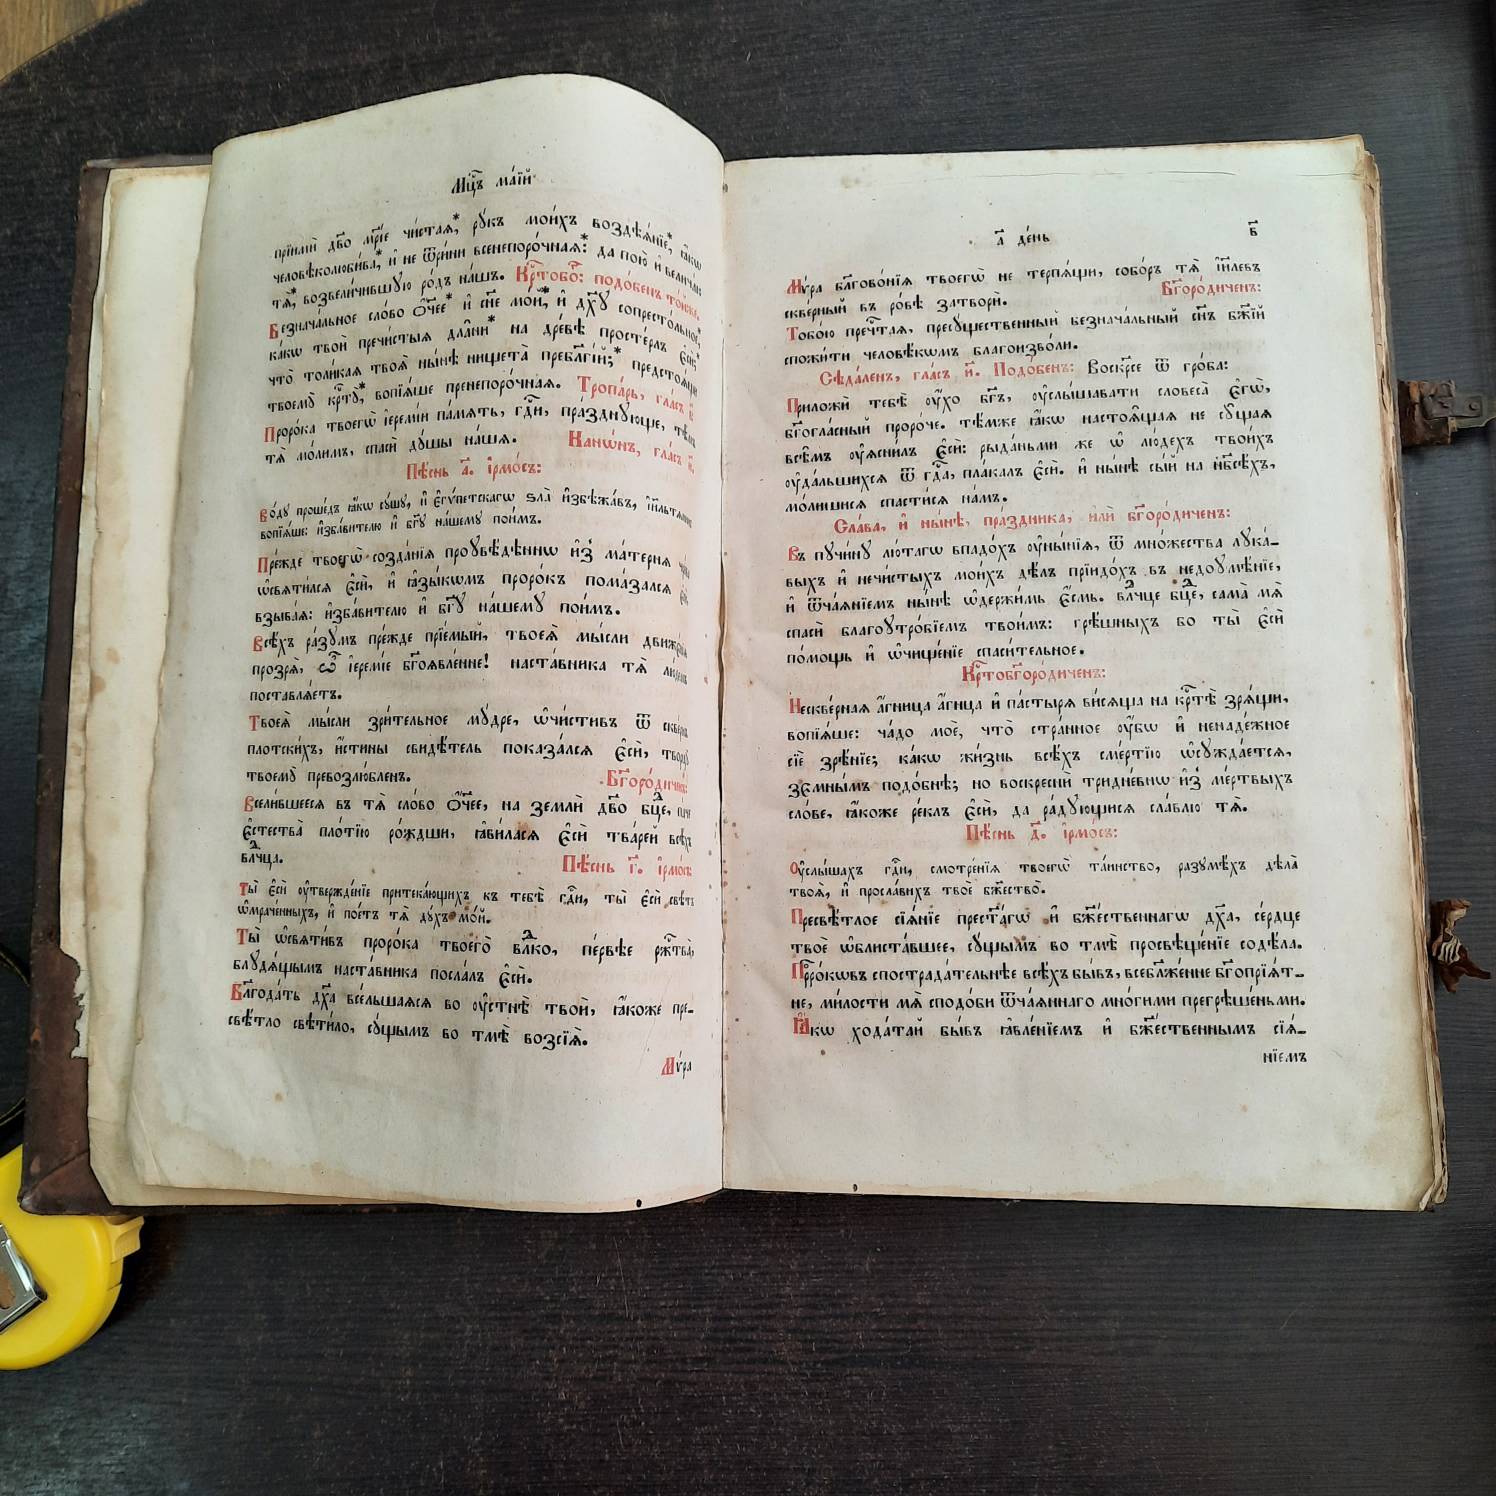 Мц҃ъ ма́їй
прїимѝ дв҃о мр҃і́е чи́стая,* ру́къ мои́хъ воздѣѧ́нїе,* ꙗ҆́кѡ
человѣколюби́ва,* и҆ не ѿри́ни всенепоро́чная:* да пою̀ и҆ велича́ю
тѧ̀,* возвели́чившую ро́дъ на́шъ. Крⷭ҇тобоⷢ҇: подо́бенъ то́йже.
Безнача́льное сло́во ѻ҆́ч҃ее* и҆ сн҃е мо́й,* и҆ дх҃у сопресто́льное,*
ка́кѡ твоѝ пречи́стыя дла̑ни* на дре́вѣ просте́рлъ є҆сѝ;*
что̀ толи́кая твоѧ̀ ны́нѣ нищета̀ преблг҃і́й;* предстоѧ́щи
твоемꙋ̀ крⷭ҇тꙋ̀,* вопїѧ́ше пренепоро́чная. Тропа́рь, гла́съ в҃.
Проро́ка твоегѡ̀ і҆еремі́и па́мять, гдⷭ҇и, пра́зднующе, тѣ́мъ
тѧ̀ мо́лимъ, спасѝ ду́шы на́шѧ. Кано́нъ, гла́съ и҃.
Пѣ́снь а҃. і҆рмо́съ:
Во́ду проше́дъ ꙗ҆́кѡ су́шу, и҆ є҆гѵ́петскагѡ ѕла̀ и҆збѣжа́въ, і҆и҃льтѧнинъ
вопїѧ́ше: и҆зба́вителю и҆ бг҃у на́шему пои́мъ.
Пре́жде твоегѡ̀ созда́нїя проувѣ́дѣннѡ и҆з̾ ма́терня чре́ва
ѡ҆святи́лся є҆сѝ, и҆ ꙗ҆зы́кѡмъ проро́къ пома́зался є҆сѝ,
взыва́я: и҆зба́вителю и҆ бг҃у на́шему пои́мъ.
Всѣ́хъ ра́зумъ пре́жде прїе́мый, твоеѧ̀ мы́сли движе́нїя
прозрѧ̀, ѽ і҆еремі́е бг҃оявле́нне! наста́вника тѧ̀ лю́демъ
поставлѧ́етъ.
Твоеѧ̀ мы́сли зри́тельное му́дре, ѡ҆чи́стивъ ѿ скве́рнъ
плотски́хъ, и҆́стины свидѣ́тель показа́лся є҆сѝ, творцу̀
твоемꙋ̀ превозлю́бленъ. Бг҃оро́диченъ:
Всели́вшееся въ тѧ̀ сло́во ѻ҆́ч҃ее, на землѝ дв҃о бц҃е, па́че
є҆стества̀ пло́тїю ро́ждши, ꙗ҆ви́лася є҆сѝ тва́рей всѣ́хъ
влⷣчца. Пѣ́снь г҃. і҆рмо́съ:
Ты̀ є҆сѝ ѹ҆твержде́нїе притека́ющихъ къ тебѣ̀ гдⷭ҇и, ты̀ є҆сѝ свѣ́тъ
ѡ҆мраче́нныхъ, и҆ пое́тъ тѧ̀ ду́хъ мо́й.
Ты̀ ѡ҆святи́въ проро́ка твоего̀ влⷣко, пе́рвѣе ржⷭ҇тва̀,
блудѧ́щымъ наста́вника посла́лъ є҆сѝ.
Благода́ть дх҃а все́льшаяся во ѹ҆стнѣ̀ твоѝ, ꙗ҆́коже пре-
свѣ́тло свѣти́ло, су́щымъ во тмѣ̀ возсїѧ̀.
Мѵ́ра
а҃ де́нь в҃
Мѵ́ра бл҃гово́нїя твоегѡ̀ не терпѧ́щи, собо́ръ тѧ̀ і҆и҃левъ
скве́рный въ ро́вѣ затворѝ. Бг҃оро́диченъ:
Тобо́ю преч҃тая, пресу́щественный безнача́льный сн҃ъ бж҃їй
спожи́ти человѣ́кѡмъ благоизво́ли.
Сѣда́ленъ, гла́съ и҃. Подо́бенъ: Воскр҃се ѿ гро́ба:
Приложѝ тебѣ̀ ѹ҆́хо бг҃ъ, ѹ҆слы́шавати словеса̀ є҆гѡ̀,
бг҃огла́сный проро́че. тѣ́мже ꙗ҆́кѡ настоѧ́щая не су́щая
всѣ́мъ ѹ҆ясни́лъ є҆сѝ: рыда́ньми же ѡ҆ лю́дехъ твои́хъ
ѹ҆да́льшихся ѿ гдⷭ҇а, пла́калъ є҆сѝ. и҆ ны́нѣ сы́й на нб҃сѣ́хъ,
мо́лишися спасти́ся на́мъ.
Сла́ва, и҆ ны́нѣ, пра́здника, и҆лѝ бг҃оро́диченъ:
Въ пучи́ну лю́тагѡ впадо́хъ ѹ҆ны́нїя, ѿ мно́жества лука-
выхъ и҆ нечи́стыхъ мои́хъ дѣ́лъ прїидо́хъ въ недоумѣ́нїе,
и҆ ѿча́янїемъ ны́нѣ ѡ҆держи́мь є҆́смь. влⷣчце бц҃е, сама́ мѧ̀
спасѝ благоутро́бїемъ твои́мъ: грѣ́шныхъ бо ты̀ є҆сѝ
по́мощь и҆ ѡ҆чище́нїе спаси́тельное.
Крⷭ҇тобг҃оро́диченъ:
Нескве́рная а҆́гница а҆́гнца и҆ па́стыря ви́сяща на крⷭ҇тѣ̀ зрѧ́щи,
вопїѧ́ше: ча́до моѐ, что̀ стра́нное ѹ҆́бѡ и҆ ненаде́жное
сїѐ зрѣ́нїе; ка́кѡ жи́знь всѣ́хъ сме́ртїю ѡ҆сужда́ется,
зємны́мъ подо́бнѣ; но воскреснѝ тридне́внѡ и҆з̾ ме́ртвыхъ
сло́ве, ꙗ҆́коже ре́клъ є҆сѝ, да ра́дующися сла́влю тѧ̀.
Пѣ́снь д҃. і҆рмо́съ:
Ѹ҆слы́шахъ гдⷭ҇и, смотре́нїя твоегѡ̀ та́инство, разумѣ́хъ дѣла̀
твоѧ̀, и҆ просла́вихъ твоѐ бжⷭ҇тво̀.
Пресвѣ́тлое сїѧ́нїе прест҃а́гѡ и҆ бжⷭ҇твеннагѡ дх҃а, се́рдце
твоѐ ѡ҆блиста́вшее, су́щымъ во тмѣ̀ просвѣще́нїе содѣ́ла.
Прⷪ҇ро́кѡвъ спострада́тельнѣе всѣ́хъ бы́въ, всебл҃же́нне бг҃опрїѧ́т-
не, ми́лости мѧ̀ сподо́би ѿча́яннаго мно́гими прегрѣше́ньми.
Ꙗ҆́кѡ хода́тай бы́въ ꙗ҆вле́нїемъ и҆ бжⷭ҇твеннымъ сїѧ́-
нїемъ